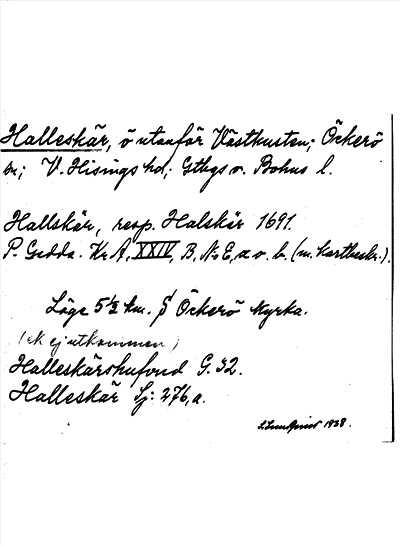 Halleskär, ö utanför Västkusten; Öckerö
sn; V. Hisings hd; Gtbgs o. Bohus l.
Hallskär, resp. Halskär 1691.
P. Gedda. Kr. A, XXIV, B, No E, a o. b. (m. kartbeskr.).
Läge 5½ km. Öckerö kyrka.
(ek ej utkommen)
Halleskärshufvud G. 32.
Halleskär Sj: 276, a.
S. Lundqvist 1938.